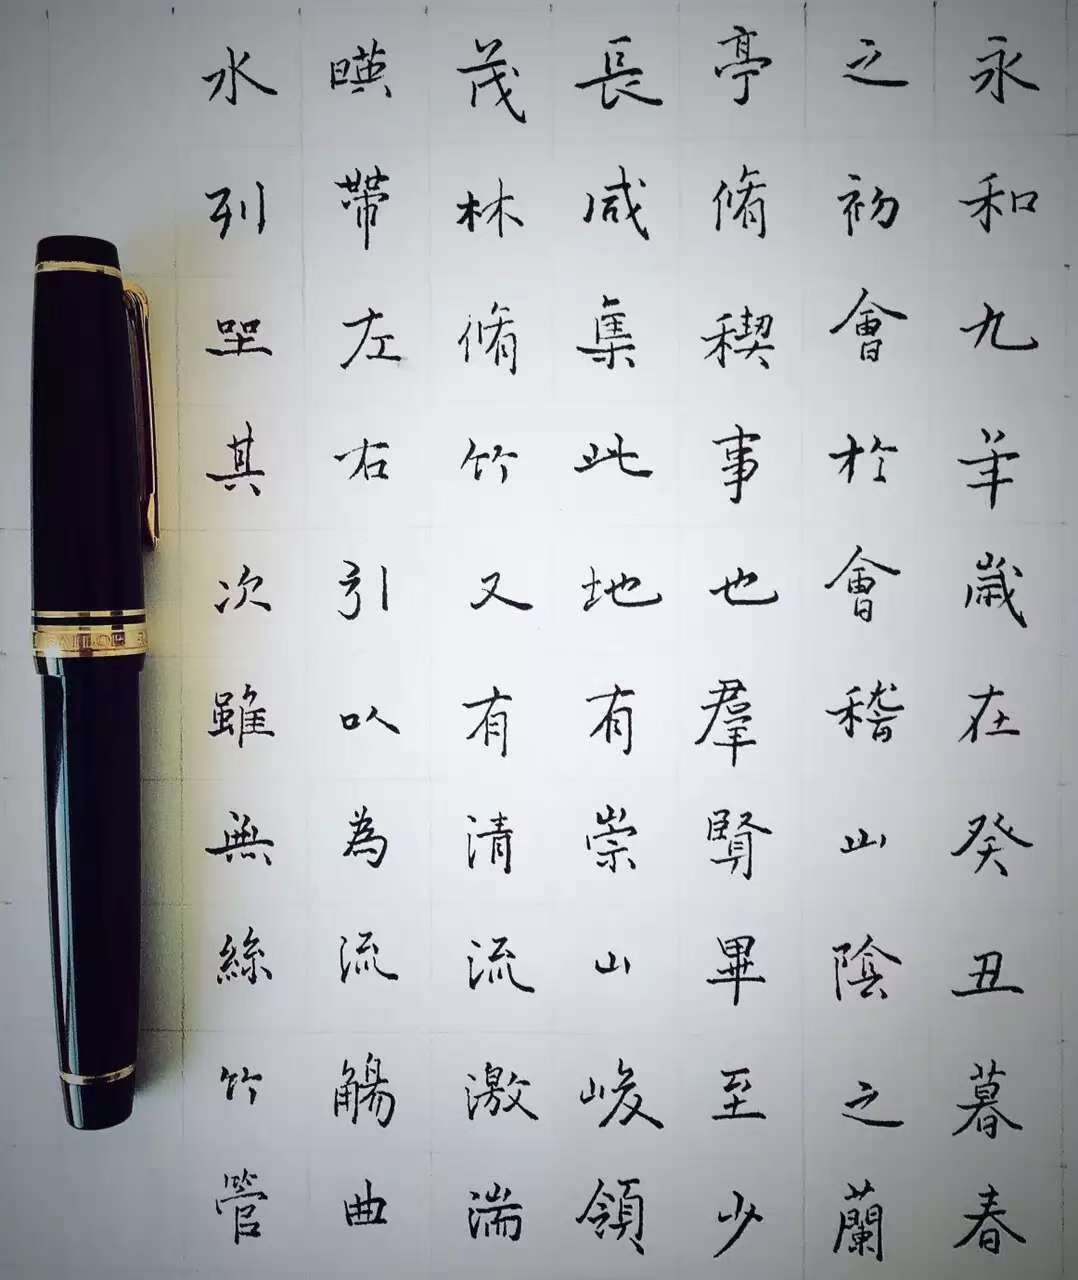 永和九年歲在癸丑暮春
之初會於會稽山陰之蘭
亭脩稧事也羣賢畢至少
長咸集此地有崇山峻領
茂林脩竹又有清流激湍
暎帶左右引以為流觴曲
水列坐其次雖無絲竹管